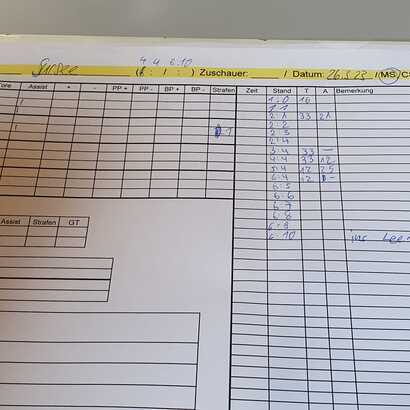 4 4 6:10
Sursee ( : / : ) Zuschauer: / Datum: 26.3.23 / MS/C
Tore Assist + - PP + PP - BP + BP - Strafen Zeit Stand T A Bemerkung
1:0 16
1:1
2:1 33 21
2:2
2:3
2:4
3:4 33 –
4:4 33 12
5:4 12 25
6:4 12 –
6:5
6:6
6:7
6:8
6:9
6:10 ins Leer
Assist Strafen GT